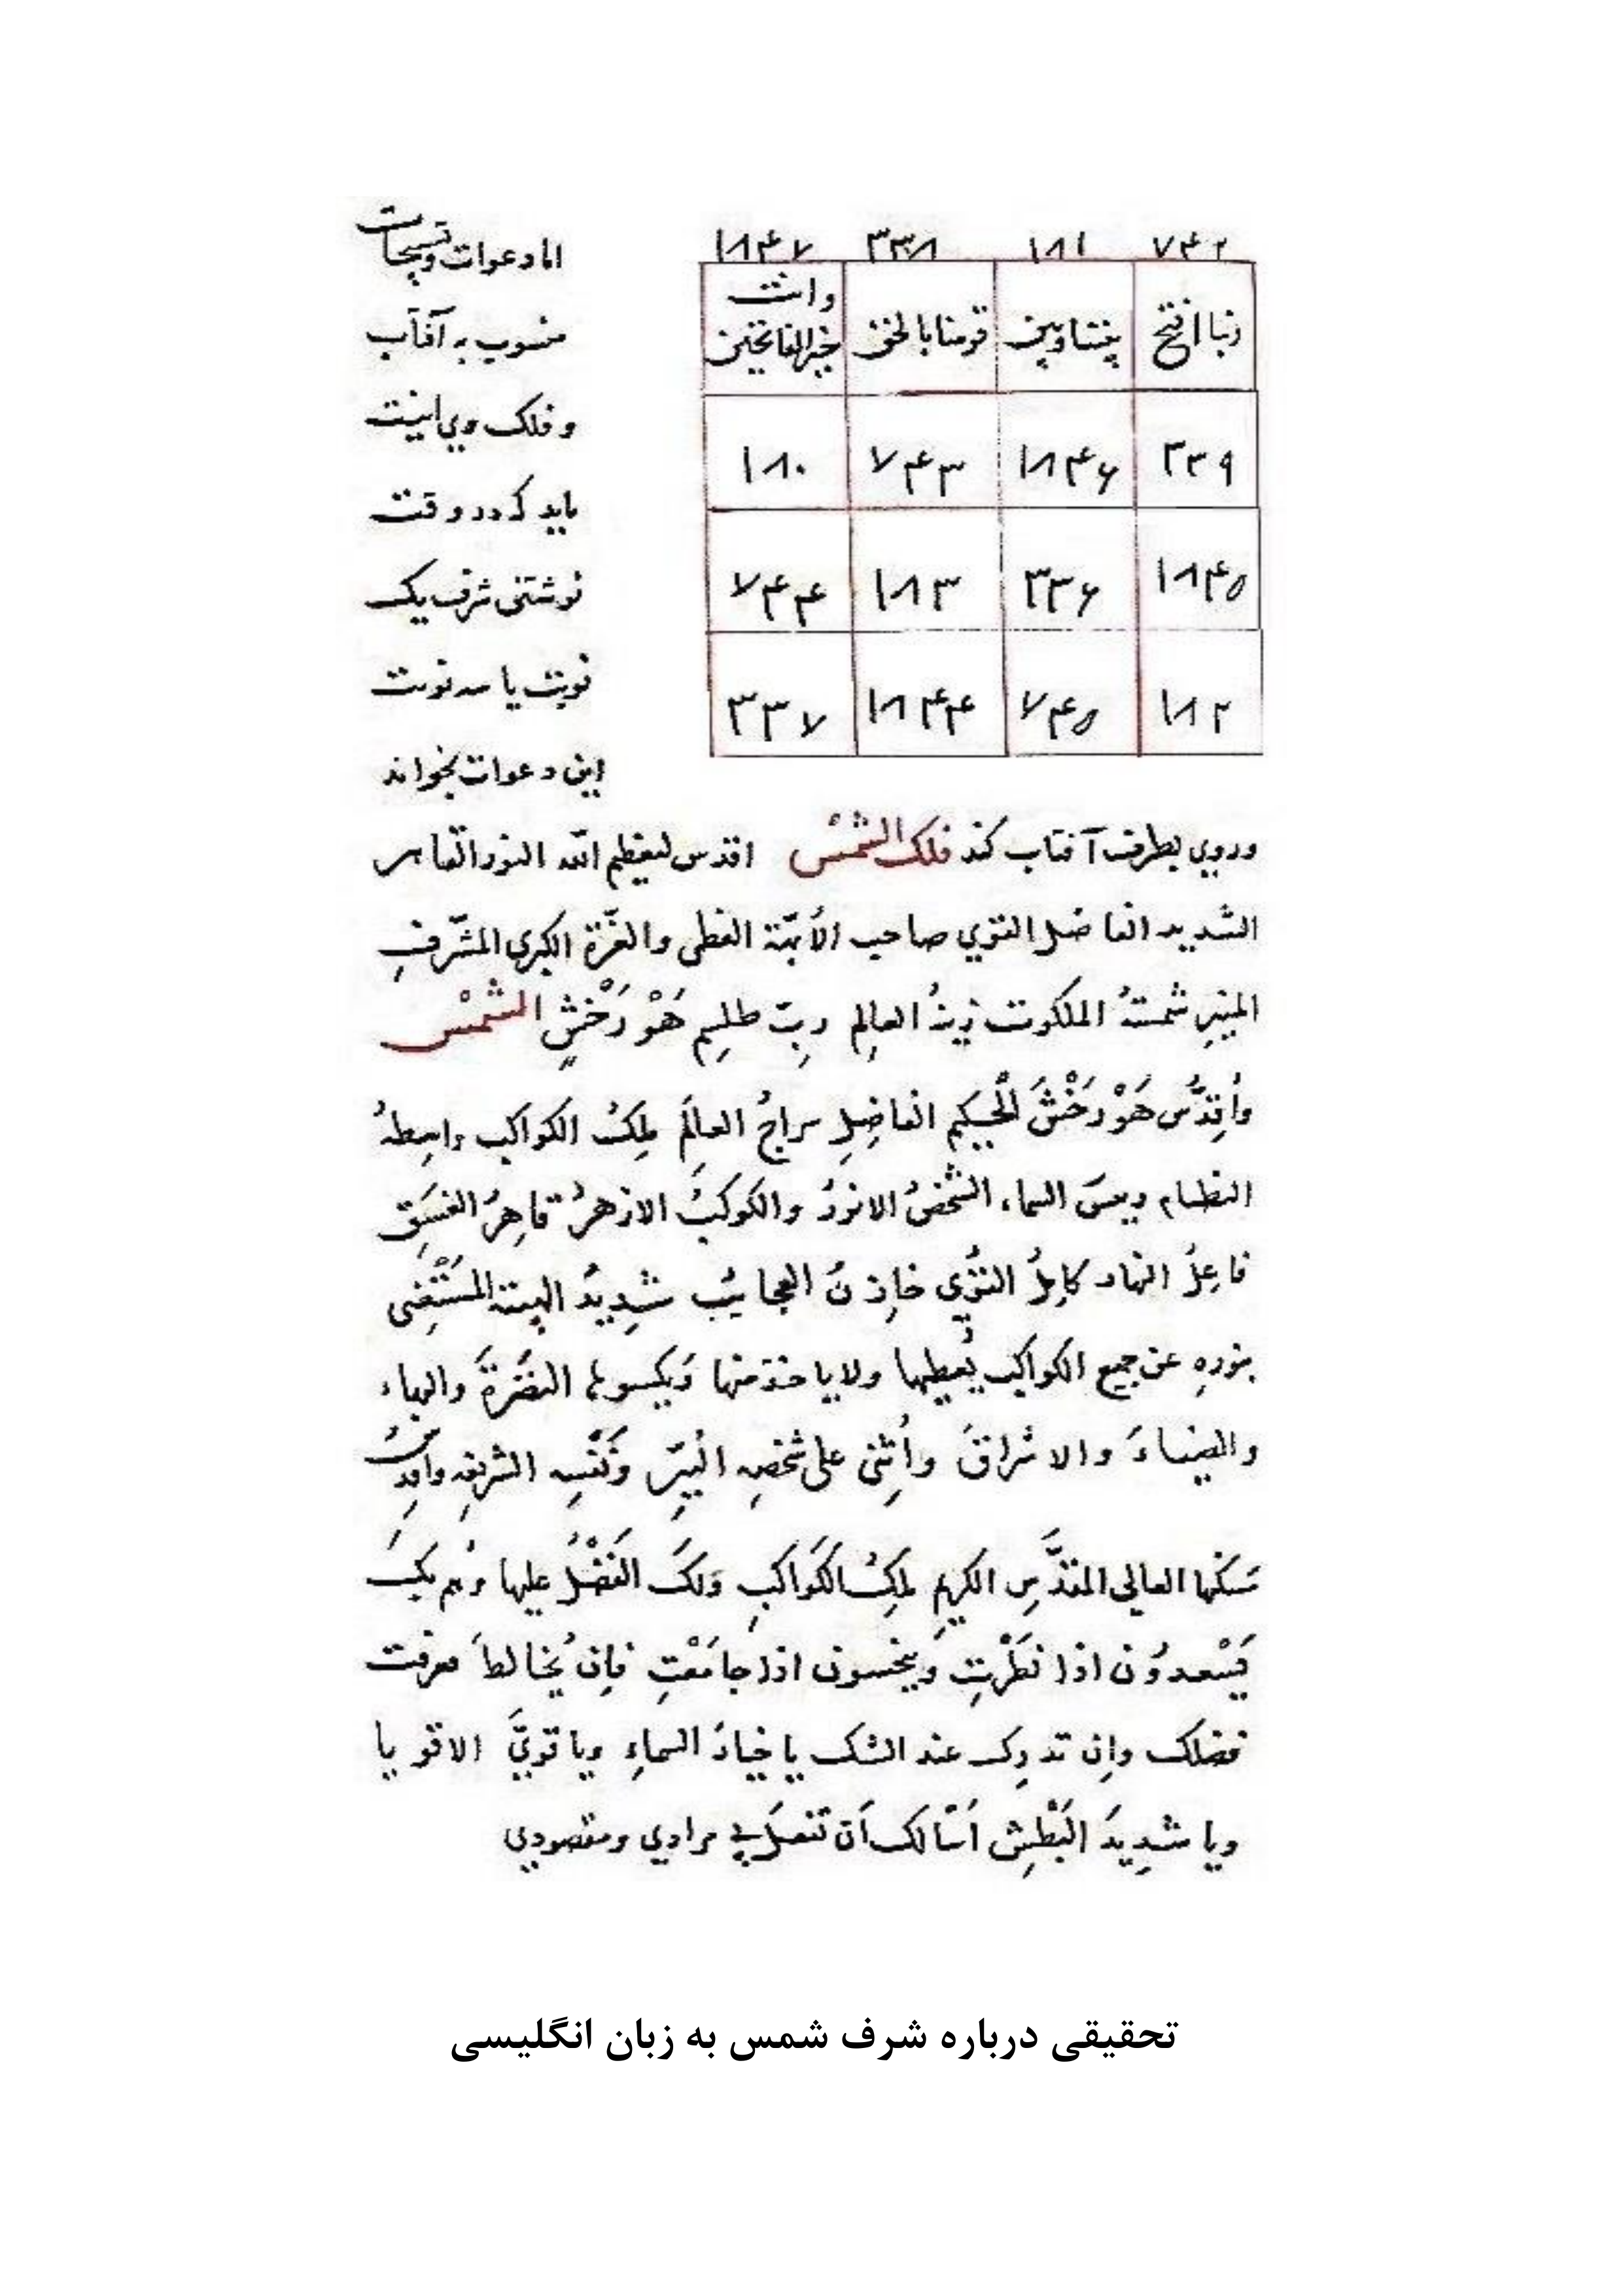 ۷۴۲ ۱۸۱ ۳۳۸ ۱۸۴۷
ربنا افتح بیننا وبین قومنا بالحق وانت خیر الفاتحین
۳۳۹ ۱۸۴۶ ۷۴۳ ۱۸۰
۱۸۴۵ ۳۳۶ ۱۸۳ ۷۴۴
۱۸۲ ۷۴۵ ۱۸۴۴ ۳۳۷
اما دعوات وتسبیحات
منسوب به آفتاب
و فلک وی اینست
باید که در وقت
نوشتنی شرف یک
نوبت یا سه نوبت
این دعوات بخواند
وروی بطرف آفتاب کند فلک الشمس اقدس لیعظم الله النور القاهر
الشدید الفاضل القوی صاحب الأبهّة العظمی والعزّة الکبری المشرّفِ
المنیرِ شمسهُ الملکوت زینُ العالِم ربّ طلسم هَوْرَخْشِ الشمْس
واُقدِّس هَوْرَخْشَ الْحکیم الفاضِلِ سراجُ العالَم مَلِکُ الکواکب واسطهُ
النظام السماء، الشخصُ الانورُ والکوکبُ الازهرُ قاهِرُ الغسَق
فاعِلُ النهار کاملُ القوی خازنُ العجایب شدیدُ الهیبة المسْتَغنی
بنورهِ عن جمیع الکواکب یُعطیها ولایاخذ منها وَیکسوها النضَرةَ والبهاء
والضیاءَ والاشراقَ واُثنی علی شخصِه النیّر ونَفسِه الشریفه واقدسُ
سَکنها العالی المقدَّسِ الکریمِ مَلِکُ الکَواکبِ وَلکَ الفَضْلُ علیها وهم بکَ
یَسْعدوُن اذا نظَرْتِ وَینحسون اذا جامَعْتِ فإن یُخالطَ معرفت
فضلک وان تدرک عند الشک یا السماءِ ویا قویَّ الاقویا
ویا شدِیدَ البَطْشِ أَسْألک اَن تفعلَ بی مرادی ومقصودی
تحقیقی درباره شرف شمس به زبان انگلیسی